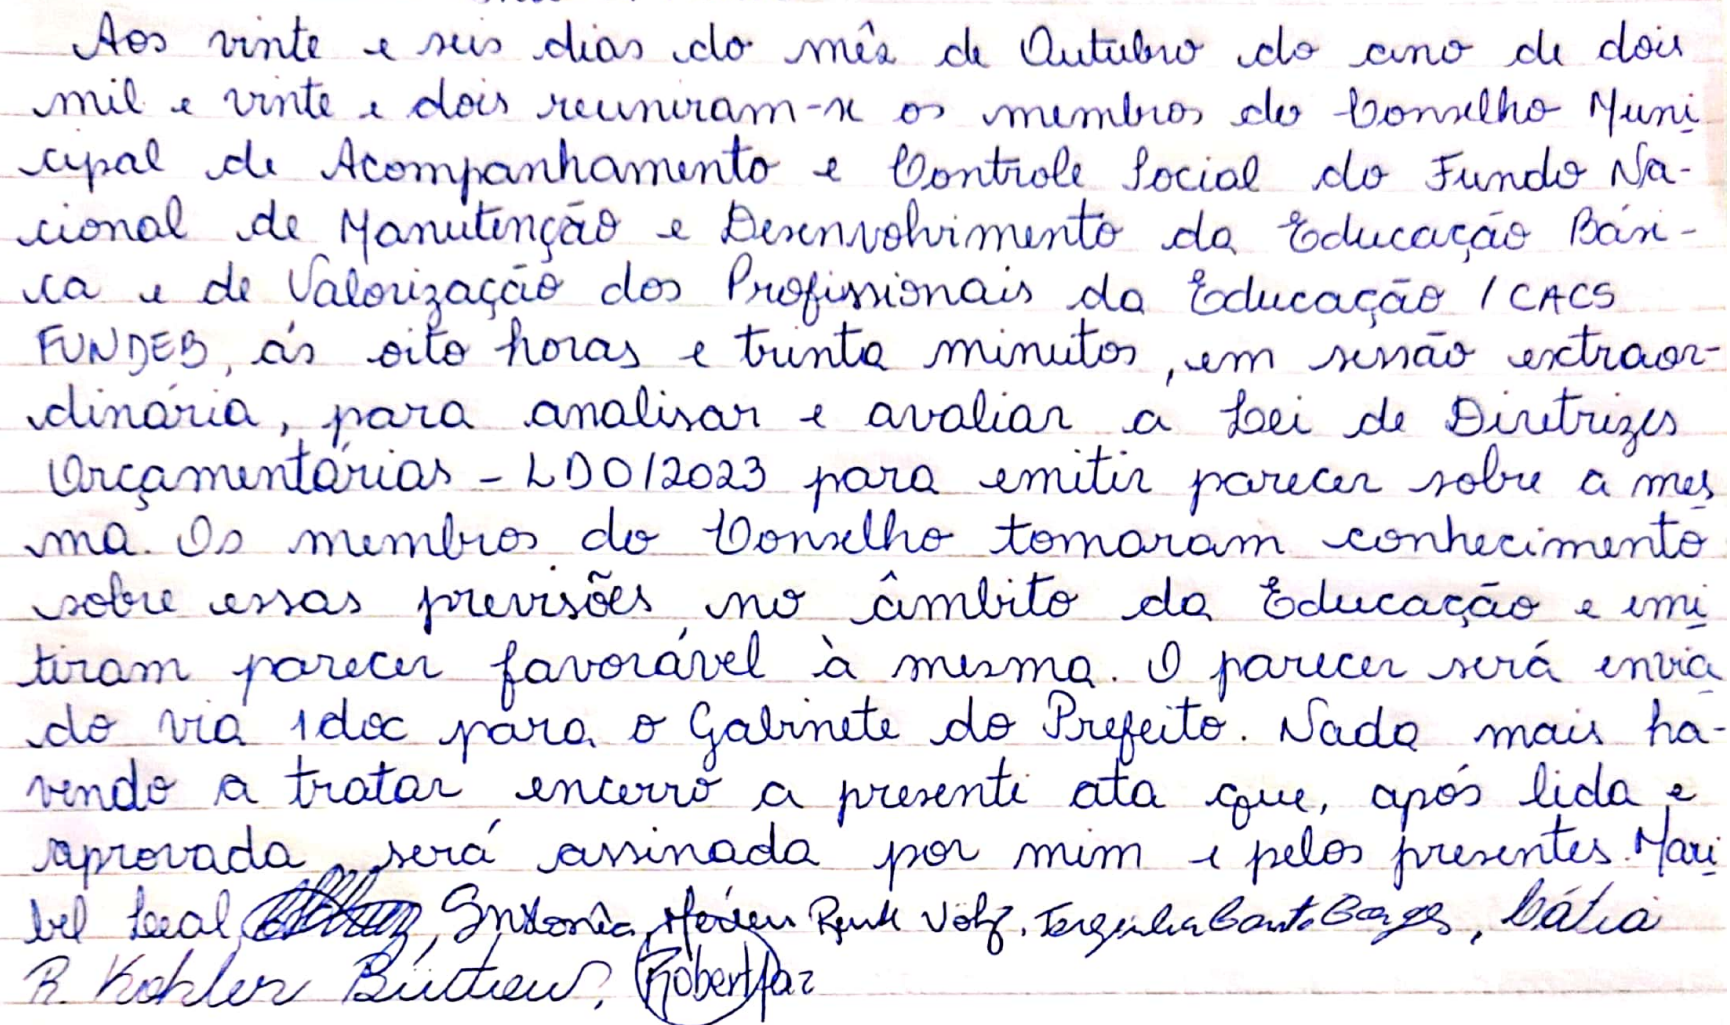 Aos vinte e seis dias do mês de Outubro do ano de dois
mil e vinte e dois reuniram-se os membros do Conselho Muni
cipal de Acompanhamento e Controle Social do Fundo Na-
cional de Manutenção e Desenvolvimento da Educação Bási-
ca e de Valorização dos Profissionais da Educação / CACS
FUNDEB, ás oito horas e trinta minutos, em sessão extraor-
dinária, para analisar e avaliar a Lei de Diretrizes
Orçamentárias - LDO/2023 para emitir parecer sobre a mes
ma. Os membros do Conselho tomaram conhecimento
sobre essas previsões, no âmbito da Educação e emi
tiram parecer favorável à mesma. O parecer será envia
do via 1doc para o Gabinete do Prefeito. Nada mais ha-
vendo a tratar encerro a presente ata que, após lida e
aprovada, será assinada por mim e pelos presentes. Mari
bel Leal, Cátia
R. Kohler